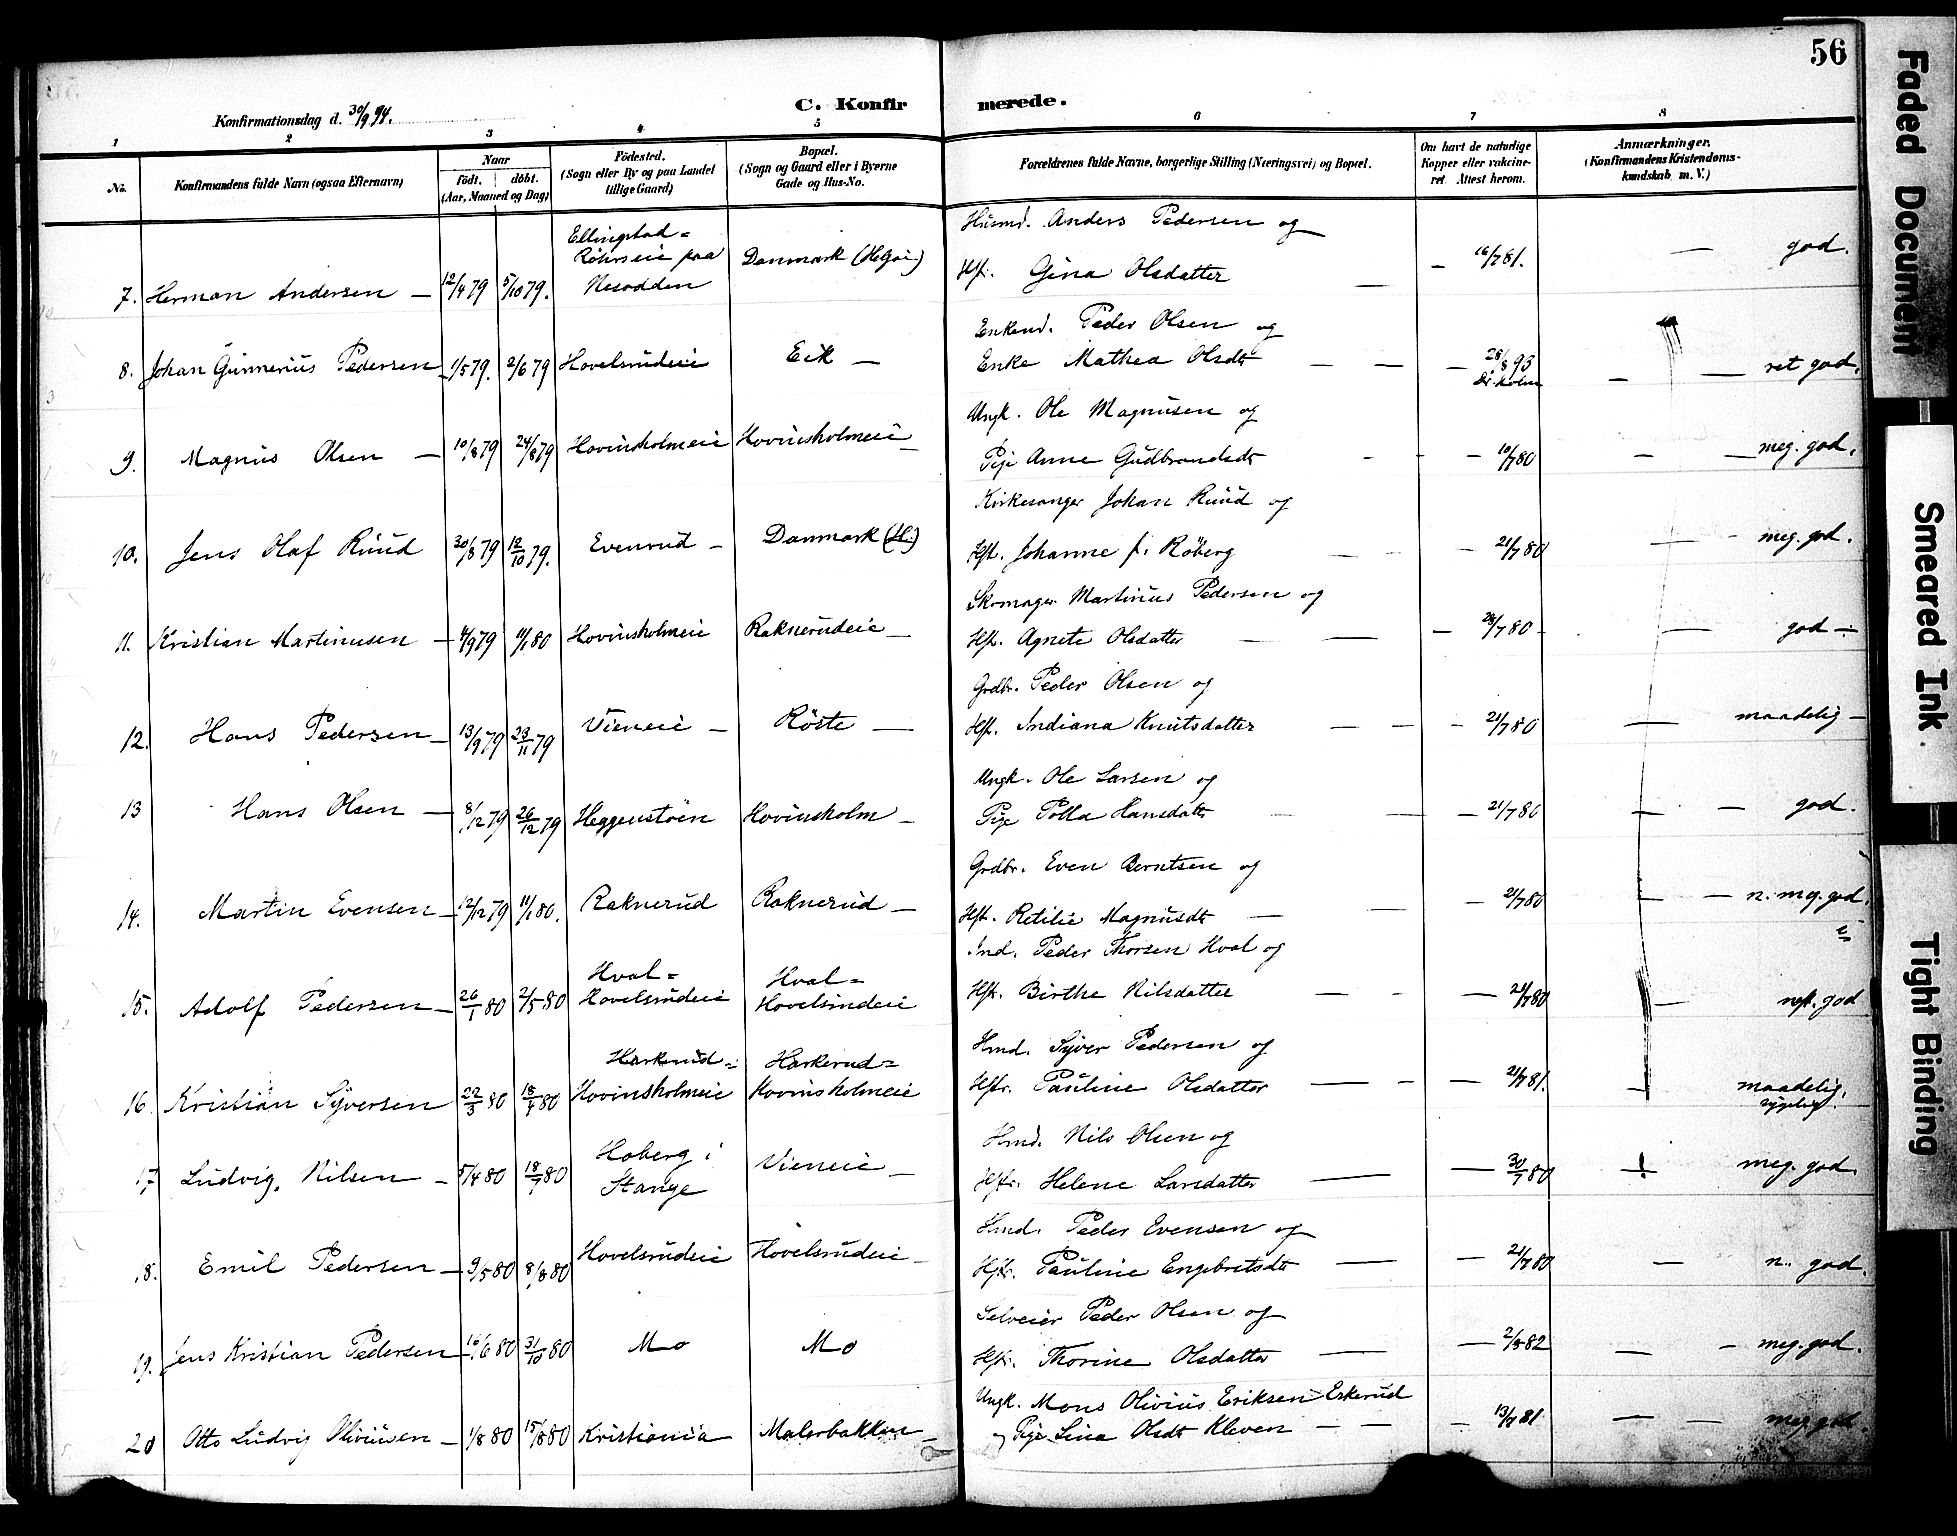 56
Konfirmationsdag d. 30/9 94.
C. Konfirmerede.
1 2 3 4 5 6 7 8
No.
Konfirmandens fulde Navn (ogsaa Efternavn)
Naar
födt. döbt.
(Aar, Maaned og Dag)
Födested.
(Sogn eller By og paa Landet
tillige Gaard)
Bopæl.
(Sogn og Gaard eller i Byerne
Gade og Hus-No.
Forældrenes fulde Navne, borgerlige Stilling (Næringsvei) og Bopæl.
Om havt de naturlige
Kopper eller vaccine-
ret. Attest herom.
Anmærkninger.
(Konfirmandens Kristendoms-
kundskab m. V.)
7. Herman Andersen — 12/4 79 5/10 79. Ellingstad= Röhrseie paa Nesodden Danmark (Helgöi) Husmd. Anders Pedersen og Hf. Gina Olsdatter — 16/7 81. — god.
8. Johan Gunnerius Pedersen 1/5 79. 2/6 79 Hovelsrudeie Eik — Enkemd. Peder Olsen og Enke Mathea Olsdtr — 28/8 93 Dr. Holm — ret god.
9. Magnus Olsen — 10/8 79 24/8 79 Hovinsholmeie Hovinsholmeie — Ungk. Ole Magnusen og Pige Anne Gudbrandsdtr — 10/7 80 — meg. god.
10. Jens Olaf Ruud 30/8 79 12/10 79. Evenrud — Danmark (H.) Kirkesanger Johan Ruud og Hf. Johanne f. Röberg — 21/7 80 — meg. god.
11. Kristian Martinusen — 4/9 79 11/1 80 Hovinsholmeie Raknerudeie — Skomager Martinus Pedersen og Hf. Agnete Olsdatter — 28/7 80 — god —
12. Hans Pedersen — 13/9 79 23/11 79 Vieneie — Röste — Grdbr. Peder Olsen og Hf. Indiana Knutsdatter — 21/7 80 — maadelig —
13 Hans Olsen — 8/12 79 26/12 79 Heggenstöen Hovinsholm — Ungk. Ole Larsen og Pige Hansdatter — 21/7 80 — god.
14. Martin Evensen — 12/12 79 11/1 80. Raknerud Raknerud — Grdbr. Even Berntsen og Hf. Magnusdtr — 21/7 80 — n. meg. god.
15. Adolf Pedersen — 26/1 80 2/5 80 Hval= Hovelsrudeie Hval= Hovelsrudeie Ind. Peder Thorsen Hval og Hf. Birthe Nilsdatter — 21/7 80 — god
16. Kristian Syversen 22/3 80 18/4 80 Harkerud= Hovinsholmeie Harkerud= Hovinsholmeie Hmd. Syver Pedersen og Hfr. Pauline Olsdatter — 21/7 81. — maadelig, sygelig.
17 Ludvig Nilsen — 5/4 80 18/7 80 Hoberg i Stange Vieneie — Hmd. Nils Olsen og Hfr. Helene Larsdatter — 30/7 80 — meg. god.
18. Emil Pedersen — 9/5 80 8/8 80 Hovelsrudeie Hovelsrudeie — Hmd. Peder Evensen og Hfr. Pauline Engebretsdtr — 21/7 80 — n. god.
19. Jens Kristian Pedersen 16/6 80 31/10 80 Mo Mo Selveier Peder Olsen og Hfr. Thorine Olsdatter — 82 — meg. god.
20 Otto Ludvig Oliviusen — 1/8 80 15/8 80 Kristiania Malerbakken — Ungk. Mons Olivius Eriksen Eskerud og Pige Lina Olsdtr Kleven — 13/7 81 — meg. god.
Faded Document
Smeared Ink
Tight Binding